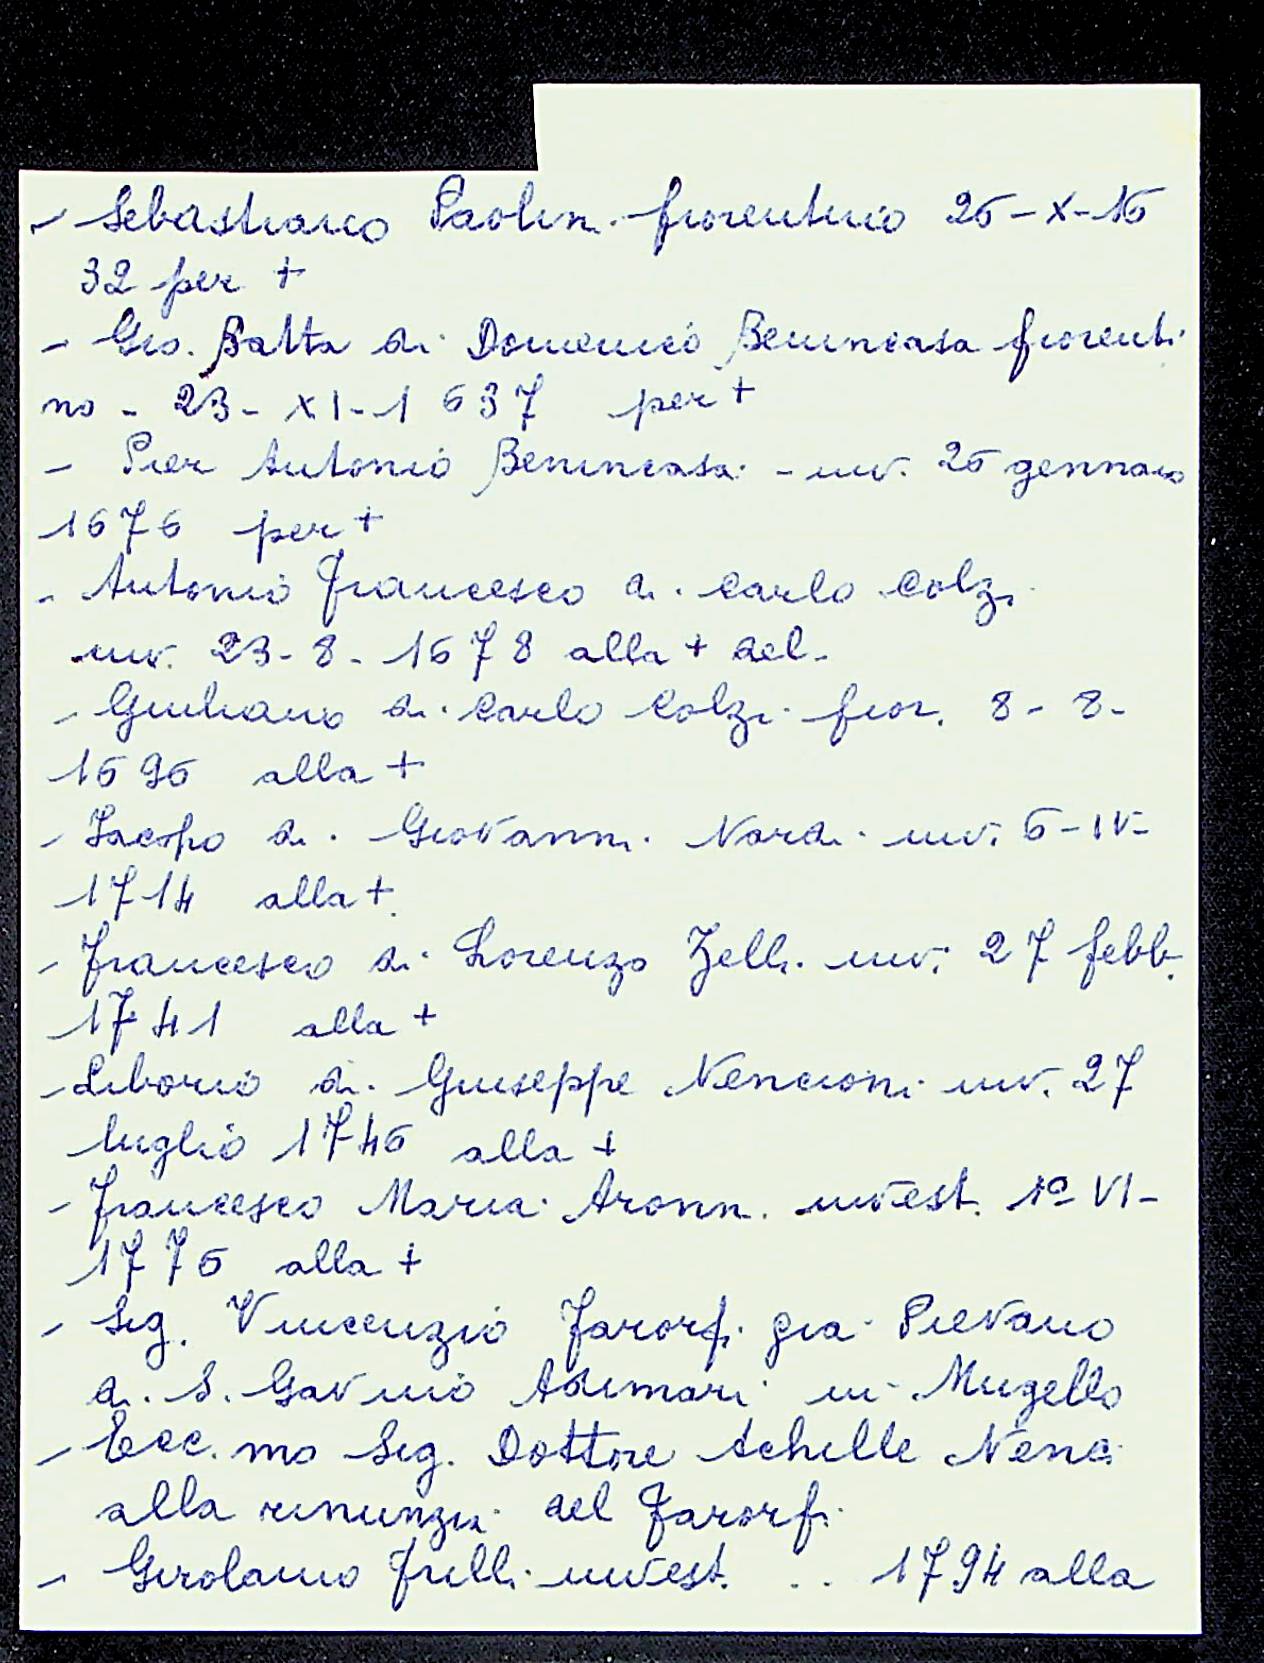 - Sebastiano Paolini fiorentino 26-X-16
32 per +
- Gio. Batta di Domenico Benincasa fiorenti
no - 23-XI-1637 per +
- Pier Antonio Benincasa - inv. 26 gennaio
1676 per +
- Antonio Francesco di Carlo Colzi
inv. 23-8-1678 alla + del
- Giuliano di Carlo Colzi fior. 8-8-
1696 alla +
- Jacopo di Giovanni Nardi inv. 6-IV-
1714 alla +
- Francesco di Lorenzo Zelli inv. 27 febb.
1741 alla +
- Liborio di Giuseppe Nencioni inv. 27
luglio 1746 alla +
- Francesco Maria Aronni invest. 1º VI-
1776 alla +
- Sig. Vincenzio già Pievano
di S. Gavino Adimari in Mugello
- Ecc.mo Sig. Dottore Achille Nenci
alla rinunzia del
- Girolamo Frilli invest. .. 1794 alla